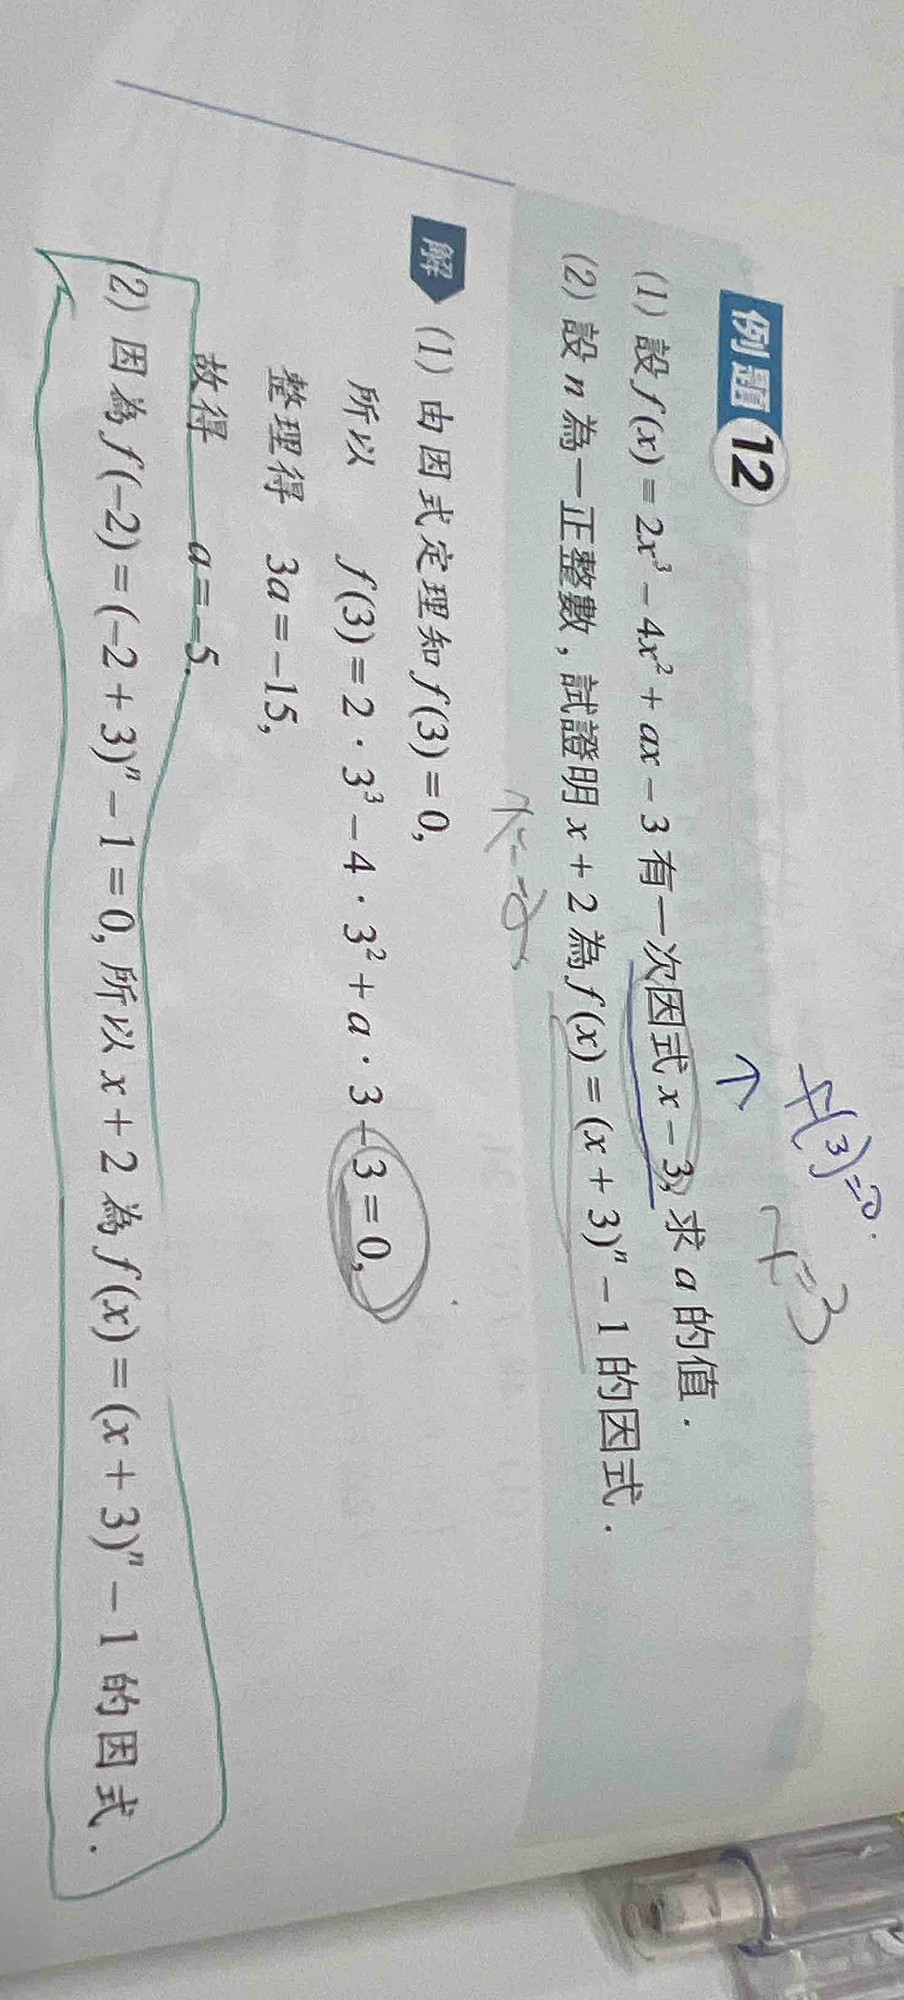 例題 12
(1) 設 f(x) = 2x³ − 4x² + ax − 3 有一次因式 x − 3, 求 a 的值.
(2) 設 n 為一正整數, 試證明 x + 2 為 f(x) = (x + 3)ⁿ − 1 的因式.
f(3)=0.
x=3
x=-2
解 (1) 由因式定理知 f(3) = 0,
所以 f(3) = 2 · 3³ − 4 · 3² + a · 3 − 3 = 0,
整理得 3a = −15,
故得 a = −5.
(2) 因為 f(−2) = (−2 + 3)ⁿ − 1 = 0, 所以 x + 2 為 f(x) = (x + 3)ⁿ − 1 的因式.